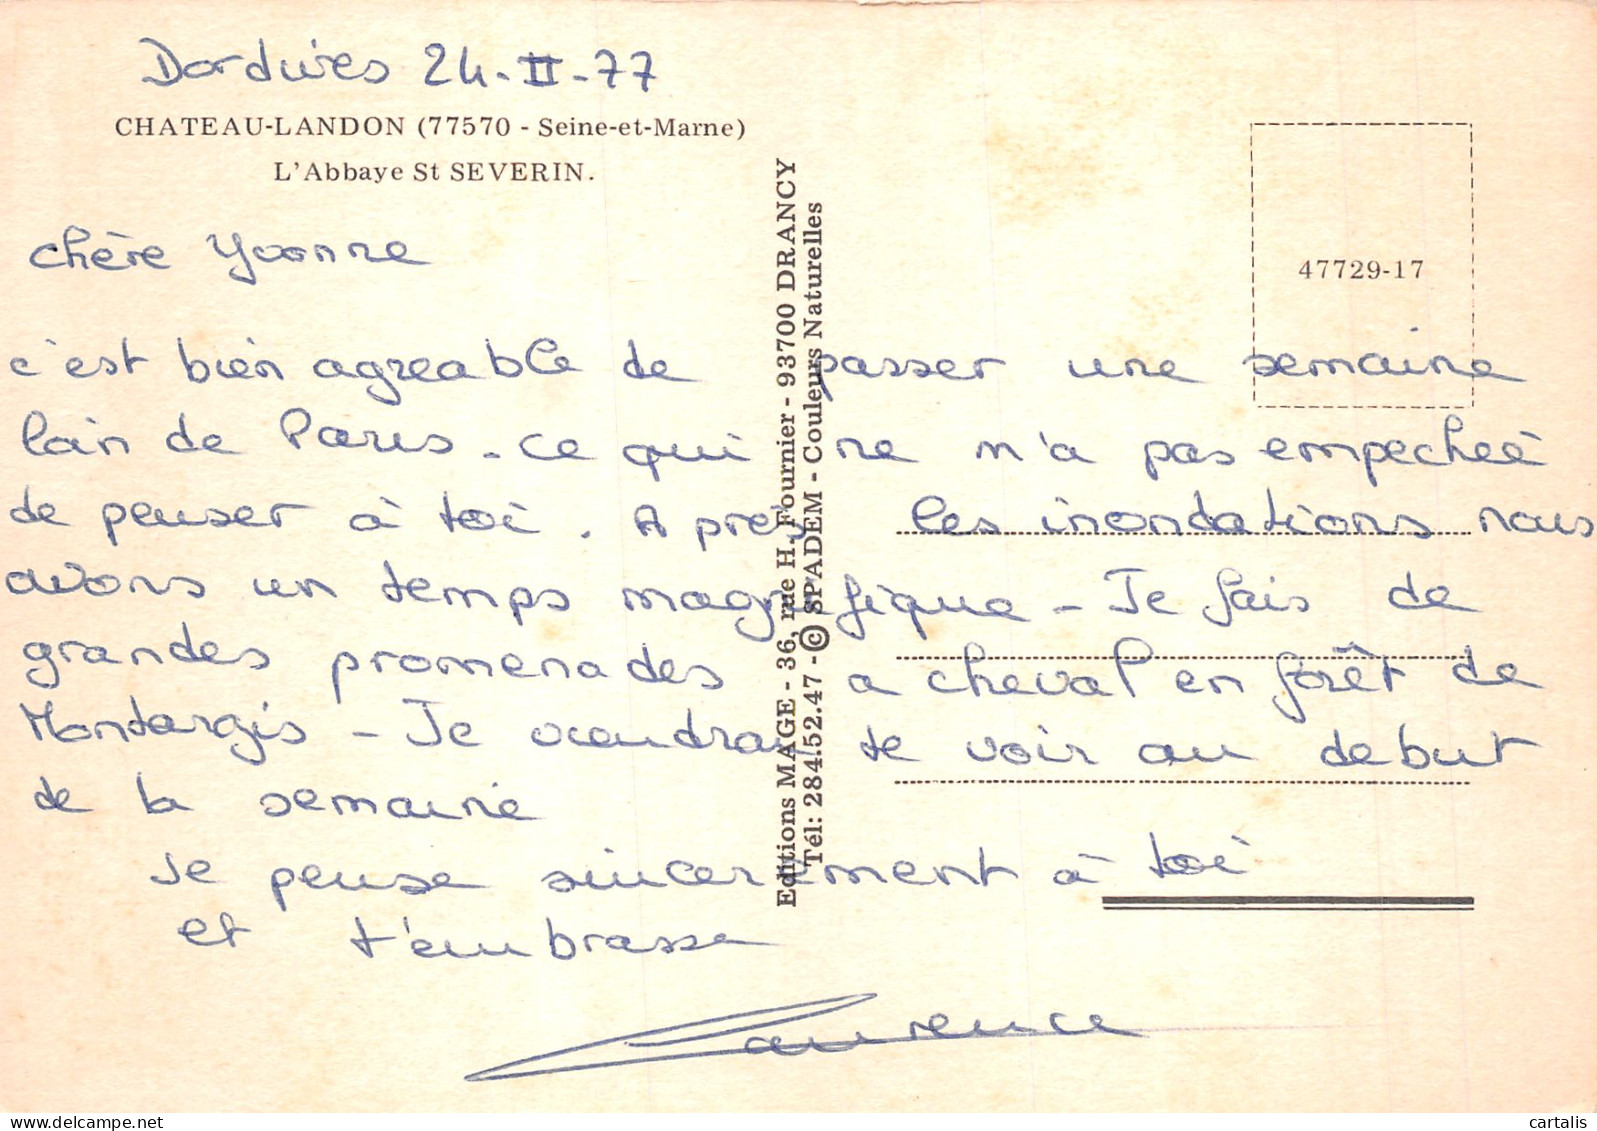 Dordives 24-II-77
CHATEAU-LANDON (77570 - Seine-et-Marne)
L'Abbaye St SEVERIN.
Chère Yvonne
c'est bien agreable de passer une semaine
loin de Paris - ce qui ne m'a pas empecheé
de penser à toi. Apres les inondations nous
avons un temps magnifique - Je fais de
grandes promenades a cheval en forêt de
Montargis - Je voudrai te voir au debut
de la semaine
Je pense sincerement à toi
et t'embrasse
Laurence
Editions MAGE - 36, rue H. Fournier - 93700 DRANCY
Tél: 284.52.47 - © SPADEM - Couleurs Naturelles
47729-17
cartalis
delcampe.net